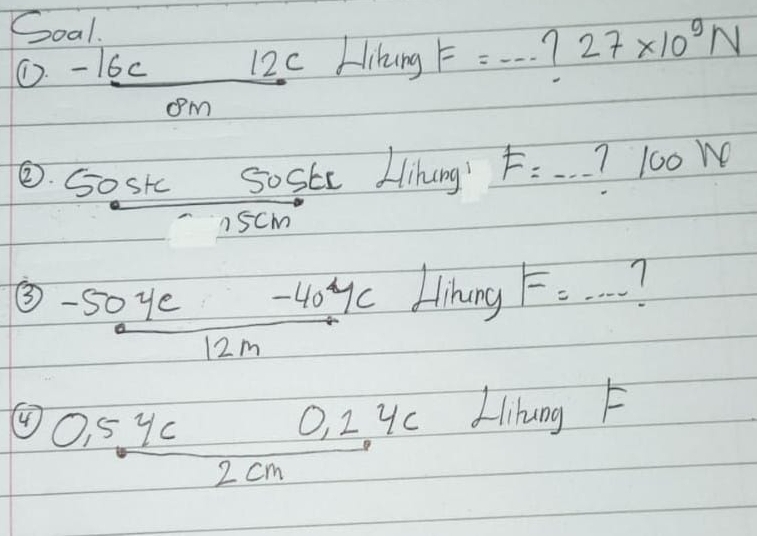 Soal.
①. -16c 12c Hitung F = ....? 27 x10⁹ N
8m
②. 50stc 50stc Hitung' F = ...? 100 N
5cm
③ -50 4c -40 4c Hitung F = ....?
12m
④ 0,5 4c 0,2 4c Hitung F
2 cm